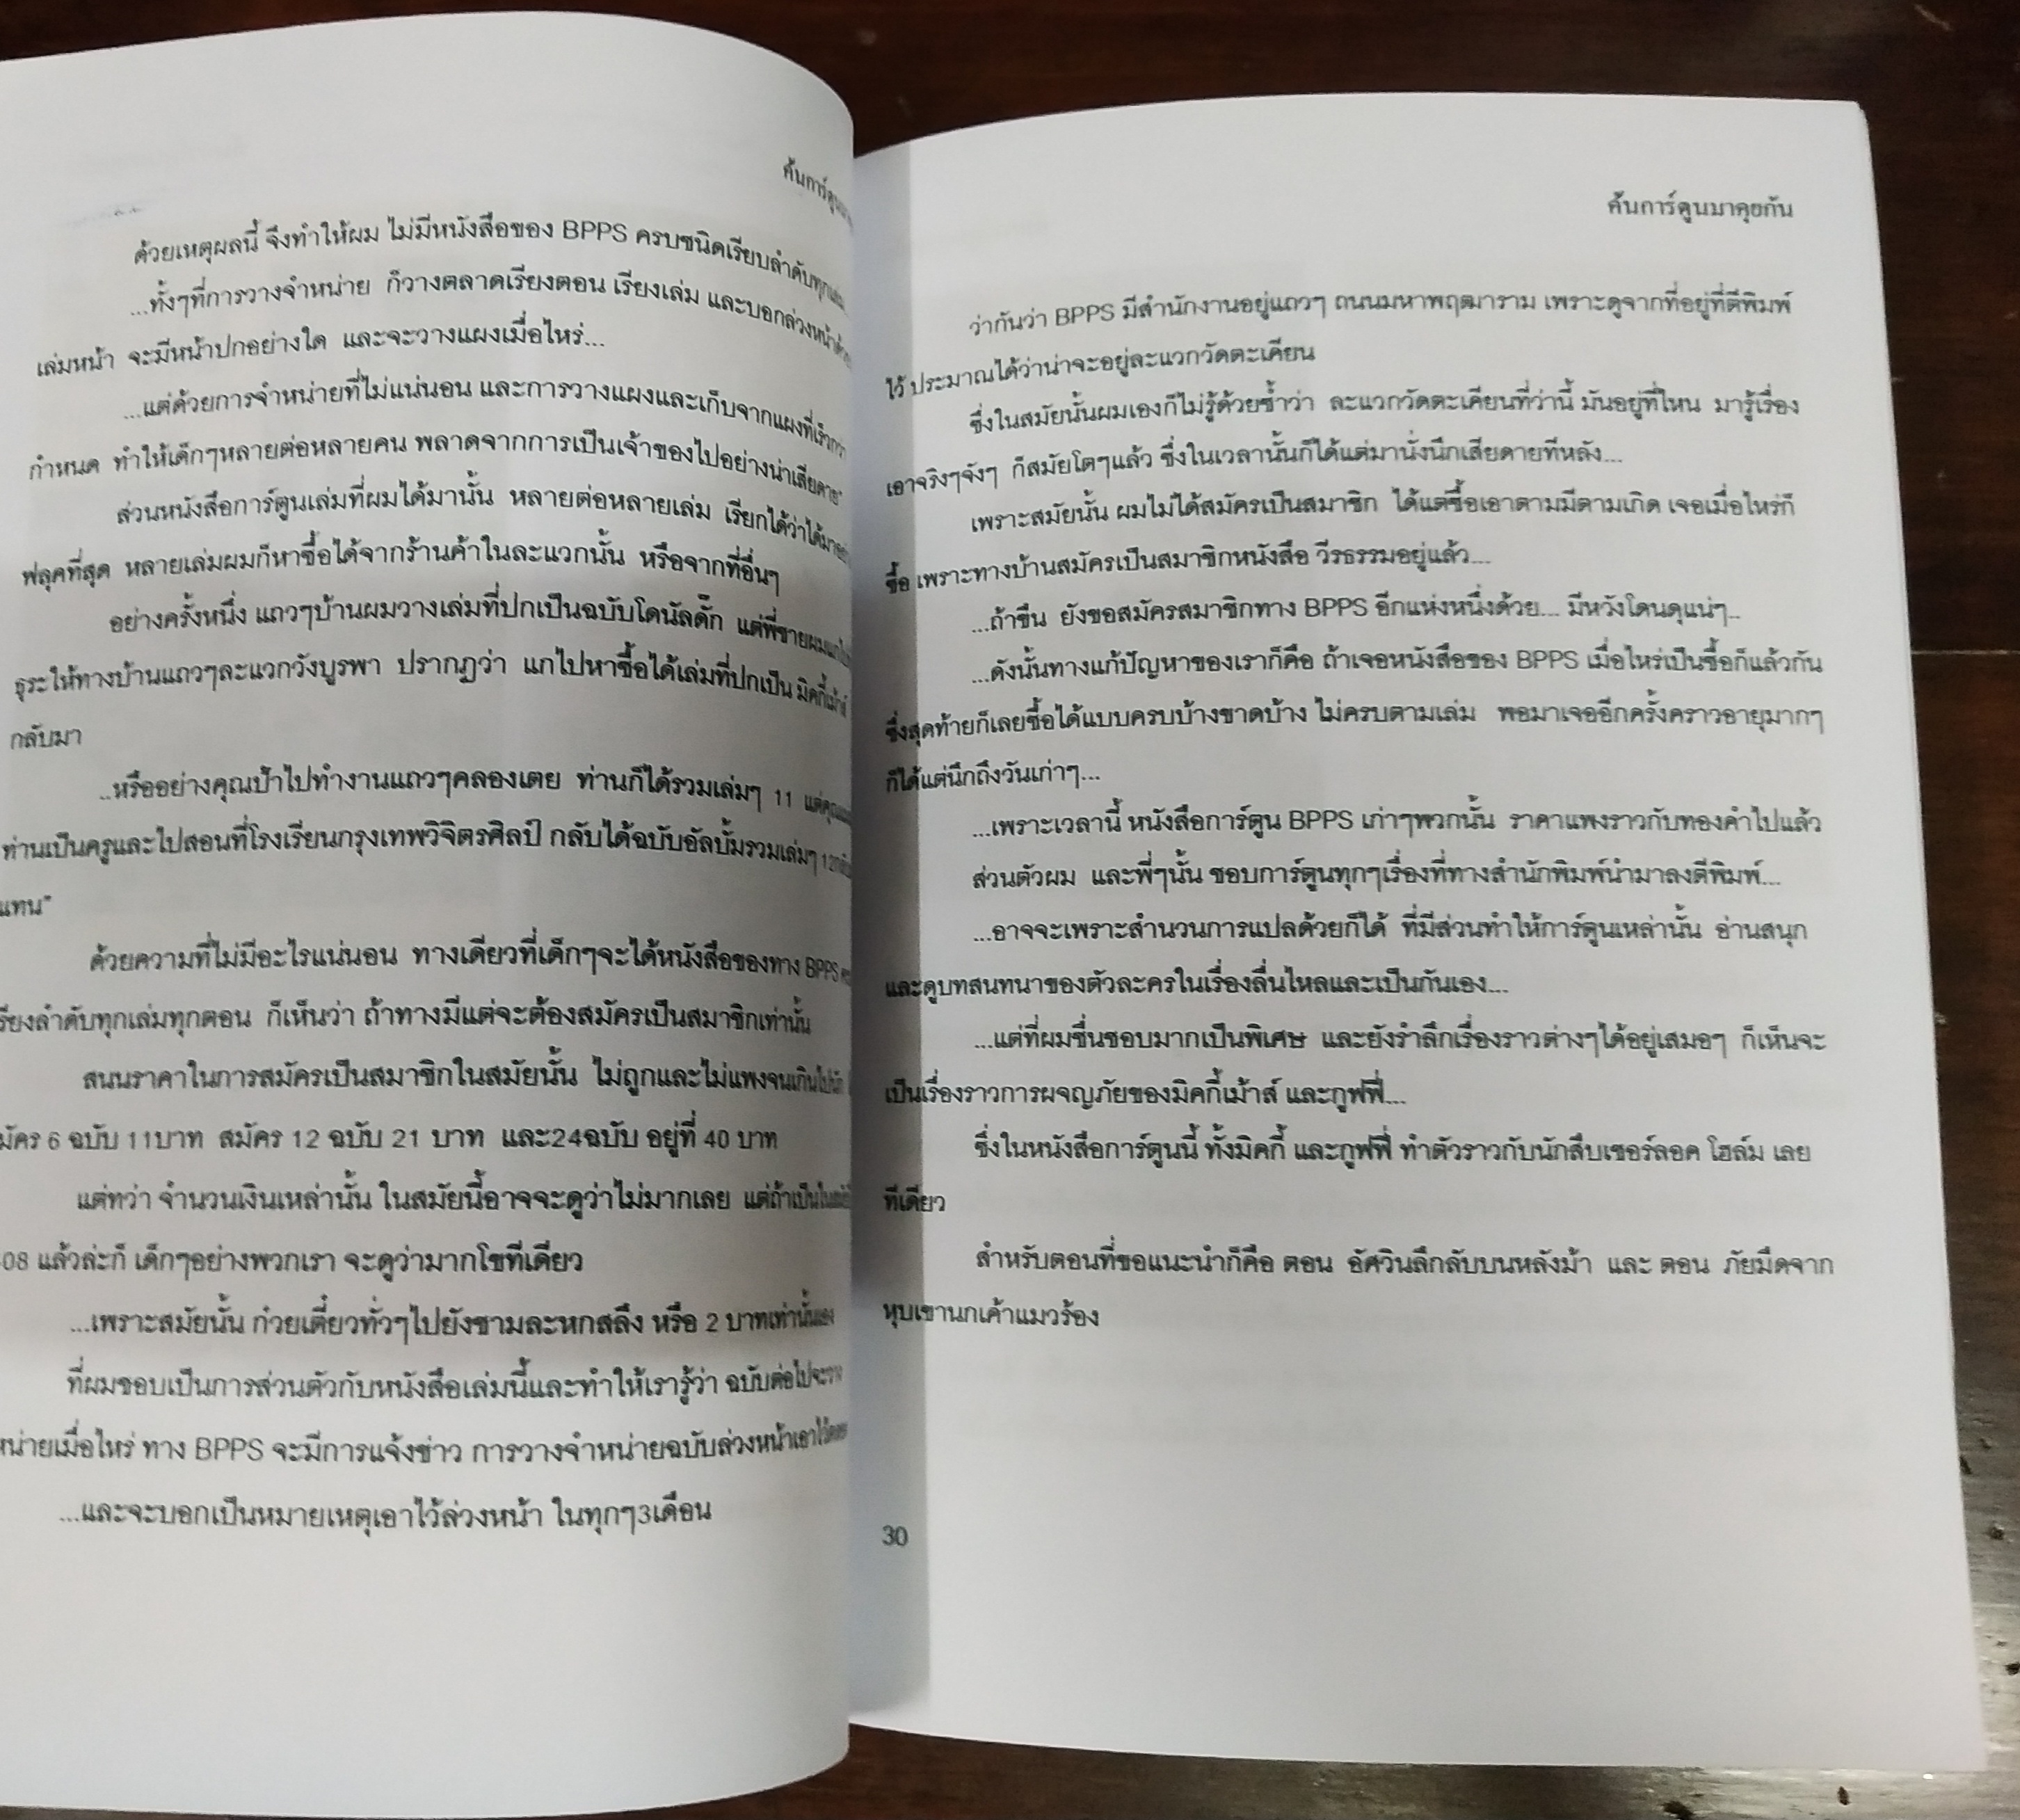 ค้นการ์ตูน
ด้วยเหตุผลนี้ จึงทำให้ผม ไม่มีหนังสือของ BPPS ครบชนิดเรียบลำดับทุกเล่ม
...ทั้งๆที่การวางจำหน่าย ก็วางตลาดเรียงตอน เรียงเล่ม และบอกล่วงหน้า
เล่มหน้า จะมีหน้าปกอย่างใด และจะวางแผงเมื่อไหร่...
...แต่ด้วยการจำหน่ายที่ไม่แน่นอน และการวางแผงและเก็บจากแผงที่เร็วกว่า
กำหนด ทำให้เด็กๆหลายต่อหลายคน พลาดจากการเป็นเจ้าของไปอย่างน่าเสียดาย"
ส่วนหนังสือการ์ตูนเล่มที่ผมได้มานั้น หลายต่อหลายเล่ม เรียกได้ว่าได้มา
ฟลุคที่สุด หลายเล่มผมก็หาซื้อได้จากร้านค้าในละแวกนั้น หรือจากที่อื่นๆ
อย่างครั้งหนึ่ง แถวๆบ้านผมวางเล่มที่ปกเป็นฉบับโดนัลดั๊ก แต่พี่ชายผม
ธุระให้ทางบ้านแถวๆละแวกวังบูรพา ปรากฏว่า แกไปหาซื้อได้เล่มที่ปกเป็น มิคกี้เม้าส์
กลับมา
..หรืออย่างคุณป้าไปทำงานแถวๆคลองเตย ท่านก็ได้รวมเล่มๆ 11 แต่
ท่านเป็นครูและไปสอนที่โรงเรียนกรุงเทพวิจิตรศิลป์ กลับได้ฉบับอัลบั้มรวมเล่มๆ
แทน"
ด้วยความที่ไม่มีอะไรแน่นอน ทางเดียวที่เด็กๆจะได้หนังสือของทาง BPPS
เรียงลำดับทุกเล่มทุกตอน ก็เห็นว่า ถ้าทางมีแต่จะต้องสมัครเป็นสมาชิกเท่านั้น
สนนราคาในการสมัครเป็นสมาชิกในสมัยนั้น ไม่ถูกและไม่แพงจนเกินไปนัก
มัคร 6 ฉบับ 11บาท สมัคร 12 ฉบับ 21 บาท และ24ฉบับ อยู่ที่ 40 บาท
แต่ทว่า จำนวนเงินเหล่านั้น ในสมัยนี้อาจจะดูว่าไม่มากเลย แต่ถ้าเป็น
08 แล้วล่ะก็ เด็กๆอย่างพวกเรา จะดูว่ามากโขทีเดียว
...เพราะสมัยนั้น ก๋วยเตี๋ยวทั่วๆไปยังชามละหกสลึง หรือ 2 บาทเท่านั้นเอง
ที่ผมชอบเป็นการส่วนตัวกับหนังสือเล่มนี้และทำให้เรารู้ว่า ฉบับต่อไปจะวาง
หน่ายเมื่อไหร่ ทาง BPPS จะมีการแจ้งข่าว การวางจำหน่ายฉบับล่วงหน้าเอาไว้
...และจะบอกเป็นหมายเหตุเอาไว้ล่วงหน้า ในทุกๆ3เดือน
ค้นการ์ตูนมาคุยกัน
ว่ากันว่า BPPS มีสำนักงานอยู่แถวๆ ถนนมหาพฤฒาราม เพราะดูจากที่อยู่ที่ตีพิมพ์
ไว้ ประมาณได้ว่าน่าจะอยู่ละแวกวัดตะเคียน
ซึ่งในสมัยนั้นผมเองก็ไม่รู้ด้วยซ้ำว่า ละแวกวัดตะเคียนที่ว่านี้ มันอยู่ที่ไหน มารู้เรื่อง
เอาจริงๆจังๆ ก็สมัยโตๆแล้ว ซึ่งในเวลานั้นก็ได้แต่มานั่งนึกเสียดายทีหลัง...
เพราะสมัยนั้น ผมไม่ได้สมัครเป็นสมาชิก ได้แต่ซื้อเอาตามมีตามเกิด เจอเมื่อไหร่ก็
ซื้อ เพราะทางบ้านสมัครเป็นสมาชิกหนังสือ วีรธรรมอยู่แล้ว...
...ถ้าขืน ยังขอสมัครสมาชิกทาง BPPS อีกแห่งหนึ่งด้วย... มีหวังโดนดุแน่ๆ..
...ดังนั้นทางแก้ปัญหาของเราก็คือ ถ้าเจอหนังสือของ BPPS เมื่อไหร่เป็นซื้อก็แล้วกัน
ซึ่งสุดท้ายก็เลยซื้อได้แบบครบบ้างขาดบ้าง ไม่ครบตามเล่ม พอมาเจออีกครั้งคราวอายุมากๆ
ก็ได้แต่นึกถึงวันเก่าๆ...
...เพราะเวลานี้ หนังสือการ์ตูน BPPS เก่าๆพวกนั้น ราคาแพงราวกับทองคำไปแล้ว
ส่วนตัวผม และพี่ๆนั้น ชอบการ์ตูนทุกๆเรื่องที่ทางสำนักพิมพ์นำมาลงตีพิมพ์...
...อาจจะเพราะสำนวนการแปลด้วยก็ได้ ที่มีส่วนทำให้การ์ตูนเหล่านั้น อ่านสนุก
และดูบทสนทนาของตัวละครในเรื่องลื่นไหลและเป็นกันเอง...
...แต่ที่ผมชื่นชอบมากเป็นพิเศษ และยังรำลึกเรื่องราวต่างๆได้อยู่เสมอๆ ก็เห็นจะ
เป็นเรื่องราวการผจญภัยของมิคกี้เม้าส์ และกูฟฟี่...
ซึ่งในหนังสือการ์ตูนนี้ ทั้งมิคกี้ และกูฟฟี่ ทำตัวราวกับนักสืบเชอร์ลอค โฮล์ม เลย
ทีเดียว
สำหรับตอนที่ขอแนะนำก็คือ ตอน อัศวินลึกลับบนหลังม้า และ ตอน ภัยมืดจาก
หุบเขานกเค้าแมวร้อง
30